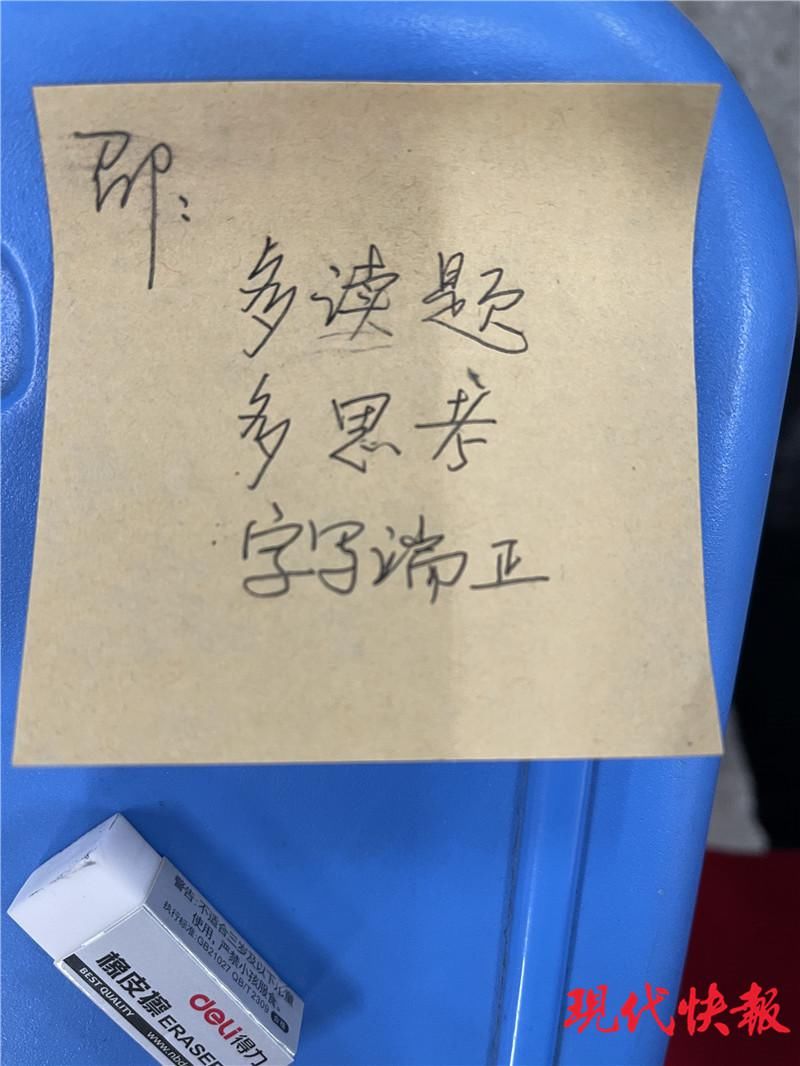 即：
多读题
多思考
字写端正
警告：不适合三岁及以下儿童
使用，严禁小孩服食。
执行标准：GB21027 QB/T2309
橡皮擦 deli得力
BEST QUALITY ERASER
www.nbd
現代快報